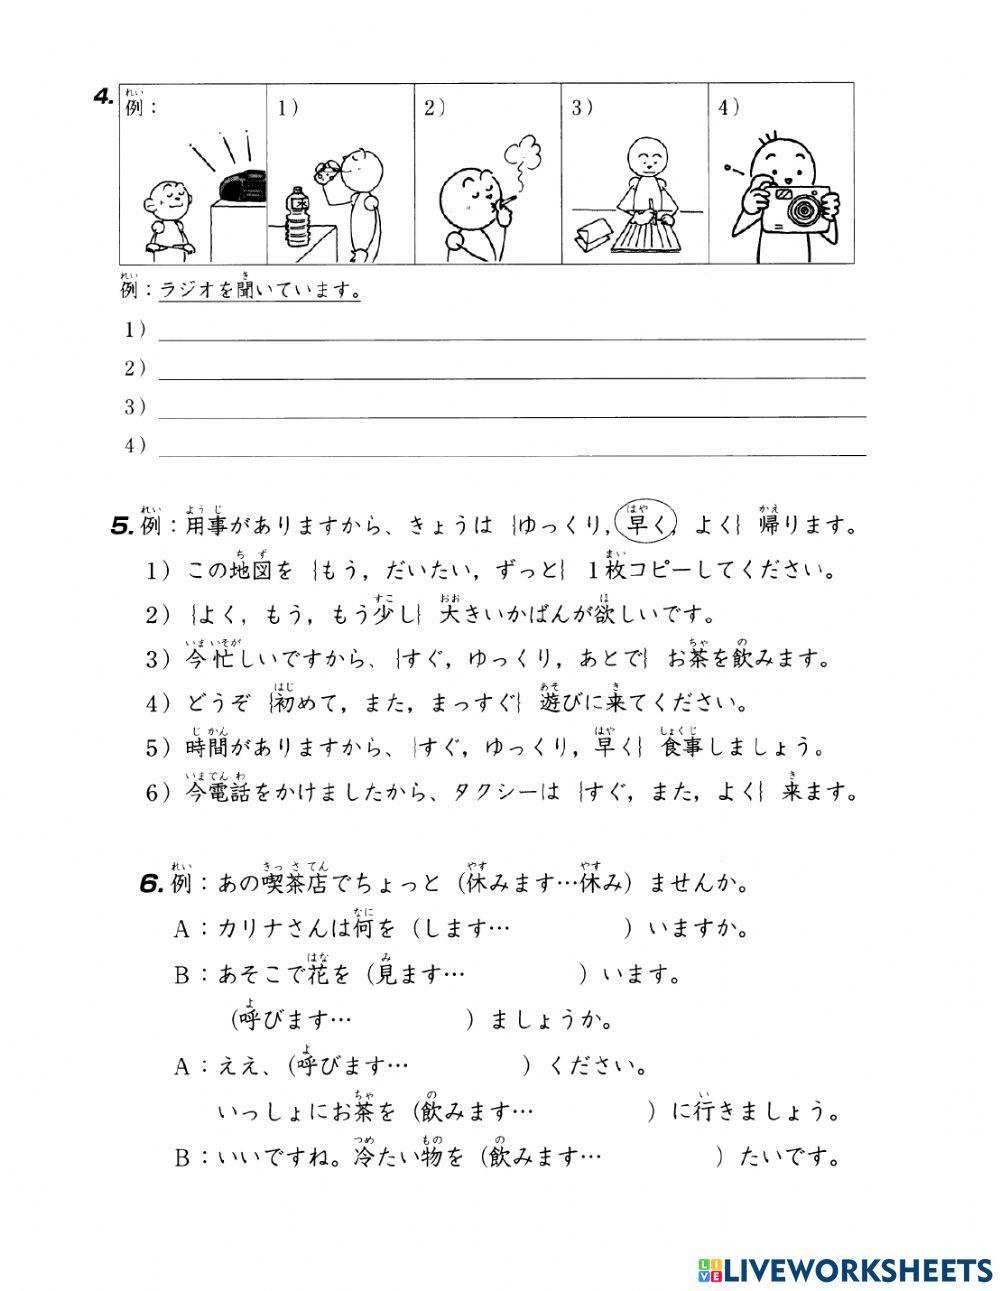 4.
例： 1） 2） 3） 4）
水
例：ラジオを聞いています。
1）
2）
3）
4）
5. 例：用事がありますから、きょうは {ゆっくり, 早く, よく} 帰ります。
1）この地図を {もう, だいたい, ずっと} 1枚コピーしてください。
2）{よく, もう, もう少し} 大きいかばんが欲しいです。
3）今忙しいですから、{すぐ, ゆっくり, あとで} お茶を飲みます。
4）どうぞ {初めて, また, まっすぐ} 遊びに来てください。
5）時間がありますから、{すぐ, ゆっくり, 早く} 食事しましょう。
6）今電話をかけましたから、タクシーは {すぐ, また, よく} 来ます。
6. 例：あの喫茶店でちょっと（休みます…休み）ませんか。
A：カリナさんは何を（します… ）いますか。
B：あそこで花を（見ます… ）います。
（呼びます… ）ましょうか。
A：ええ、（呼びます… ）ください。
いっしょにお茶を（飲みます… ）に行きましょう。
B：いいですね。冷たい物を（飲みます… ）たいです。
LIVEWORKSHEETS